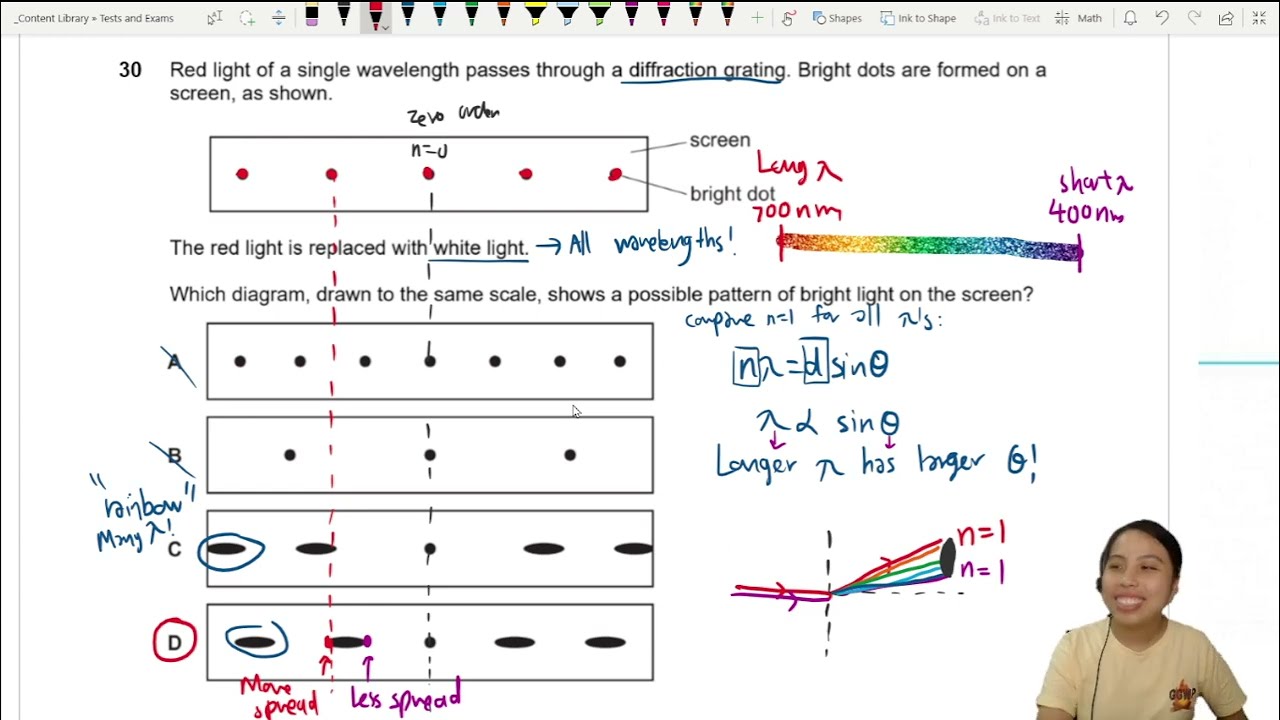 _Content Library » Tests and Exams
Shapes
Ink to Shape
Ink to Text
Math
30 Red light of a single wavelength passes through a diffraction grating. Bright dots are formed on a
screen, as shown.
zero order
n=0
screen
bright dot
Long λ
700nm
short λ
400nm
The red light is replaced with white light. → All wavelengths!
Which diagram, drawn to the same scale, shows a possible pattern of bright light on the screen?
compare n=1 for all λ's:
A
nλ=dsinθ
λ α sinθ
B
Longer λ has larger θ!
"rainbow"
Many λ!
C
n=1
n=1
D
More
spread
Less spread